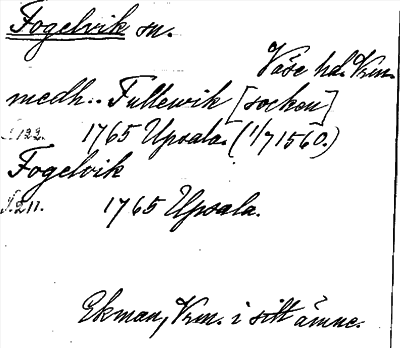 Fogelvik sn.
Väse hd. Vrm.
medh.. Fullewik [socken]
s. 122. 1765 Upsala. (1/7 1560.)
Fogelvik
s. 211. 1765 Upsala.
Ekman, Vrm. i sitt ämne.